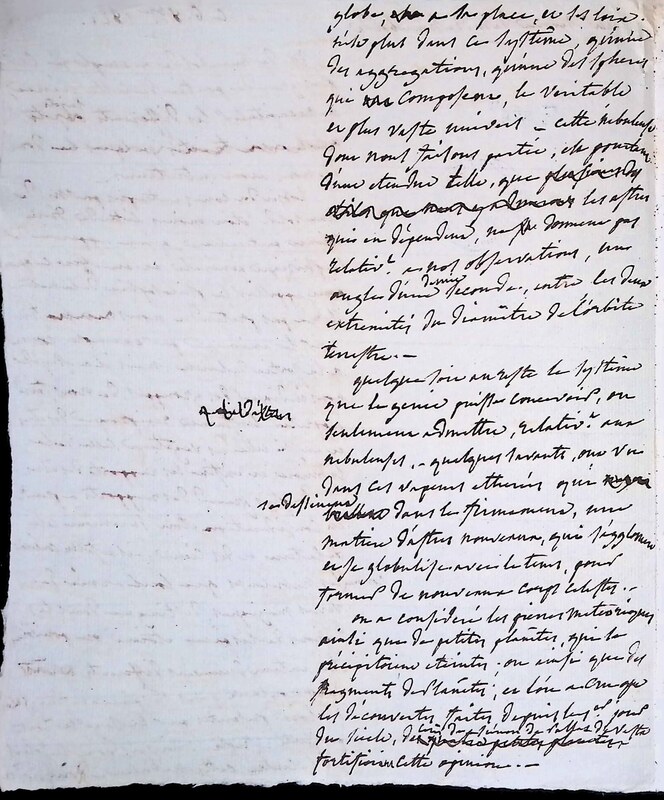 globe, a sa place, et les loix.
n'est plus dans ce systême, qu'une
des aggregations, qu'une des spheres
qui composent, le veritable
et plus vaste univers - cette nebuleuse
dont nous faisons partie, est pourtant
d'une etendue telle, que plusieurs des
les astres
qui en dépendent, ne donnent pas
relativ.t a nos observations, une
angle d'une demie seconde, entre les deux
extremités du diamêtre de l'orbite
terrestre. -
quelque soit au reste le systême
que le genie puisse concevoir, ou
seulement admettre, relativ.t aux
nebuleuses. - quelques savants, ont vu
dans ces vapeurs etherées qui
se dessinent dans le firmament, une
matiere d'astres nouveaux, qui s'agglomere
et se globulise avec le tems, pour
former de nouveaux corps celestes. -
on a consideré les pierres meteoriques
ainsi que de petites planêtes, que la
précipitoient eteintes. ou ainsi que des
fragments de planêtes, et l'on a cru que
les découvertes faites depuis le 1er jour
du siecle, de Cérès de Junon de Pallas de Vesta
fortifioient cette opinion. -